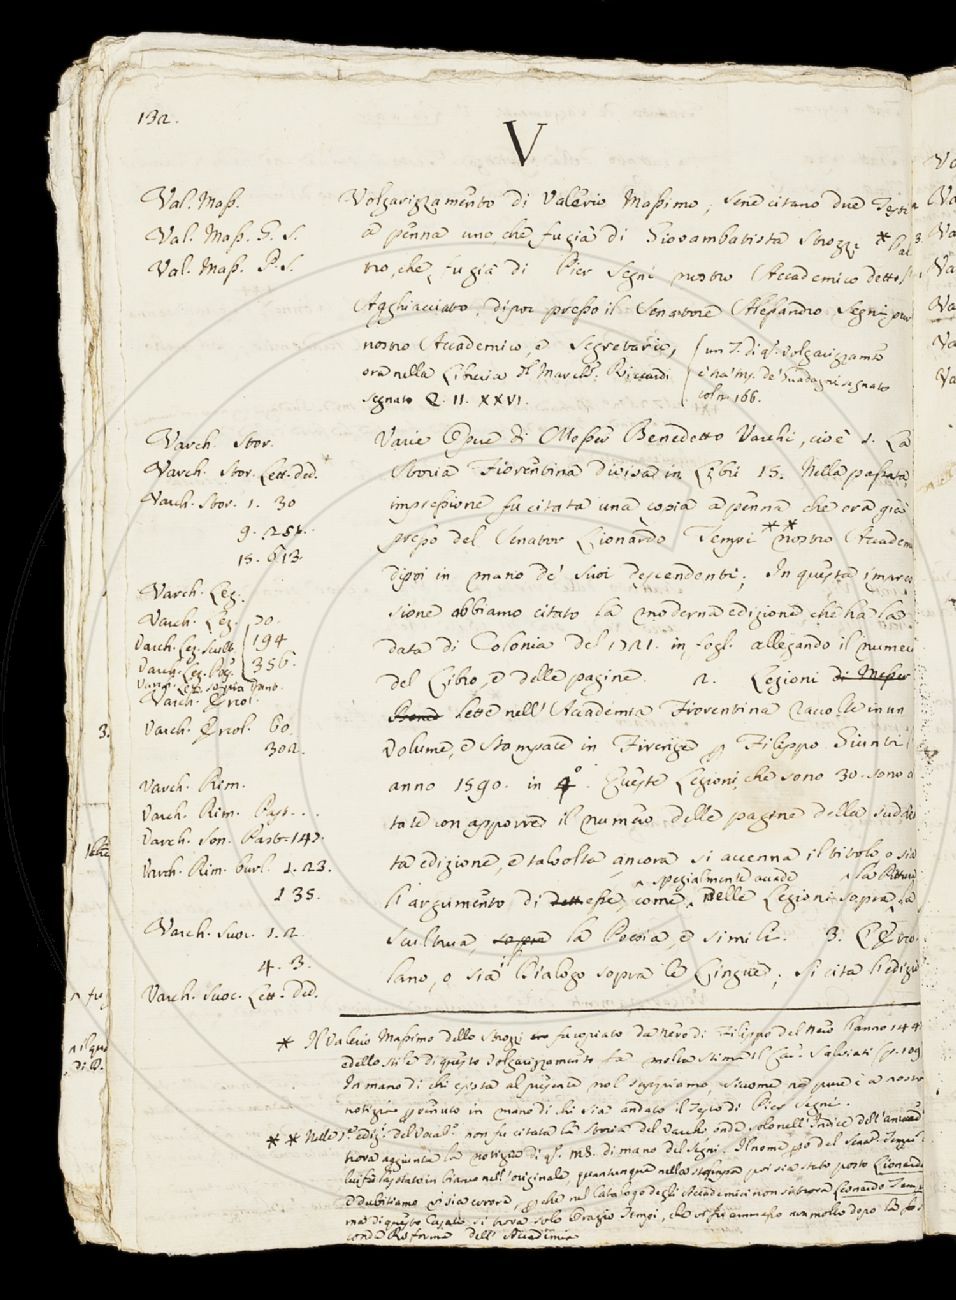 132.
V
Val. Mass.
Val. Mass. G. S.
Val. Mass. P. S.
Volgarizzamento di Valerio Massimo; sene citano due Testi
a penna uno, che fu già di Giovambatista Strozzi *
tro, che fu già di Pier Segni nostro Accademico detto l'
Agghiacciato, dipoi presso il Senatore Alessandro Segni pur
nostro Accademico, e Segretario,
ora nella Libreria del March. Riccardi
segnato Q. II. XXVI.
un T. di q. volgarizzamto
de' Guadagni segnato
col n. 166.
Varch. Stor.
Varch. Stor. Lett. ded.
Varch. Stor. 1. 30
9. 251.
15. 613.
Varch. Lez.
Varch. Lez. 20.
Varch. Lez. Scult. 194
Varch. Lez. Poes. 356.
Varch. Ercol.
Varch. Ercol. 60.
302.
Varch. Rim.
Varch. Rim. Past. . .
Varch. Son. Past. 147
Varch. Rim. burl. 1. 23.
135.
Varch. Suoc. 1. 2.
4. 3.
Varch. Suoc. Lett. Ded.
Varie Opere di Messer Benedetto Varchi, cioè 1. La
Storia Fiorentina divisa in Libri 15. Nella passata
impressione fu citata una copia a penna che era già
presso del Senator Lionardo Tempi ** nostro Accadem
dipoi in mano de' suoi descendenti; In questa impres
sione abbiamo citato la moderna edizione che ha la
data di Colonia del 1721. in fogl. allegando il numero
del Libro, e delle pagine. 2. Lezioni di Messer
Bened lette nell' Accademia Fiorentina raccolte in un
volume, e stampate in Firenze p Filippo Giunti l'
anno 1590. in 4°. Queste Lezioni, che sono 30. sono ci
tate con apporre il numero delle pagine della sudde
ta edizione, e talvolta ancora si accenna il titolo o sia
spezialmente accade
la Pittura
l'argumento di esse, come nelle Lezioni sopra la
Scultura, sopra la Poesia, e simili. 3. L'Erco
lano, o sia il Dialogo sopra le Lingue; si cita l'ediz
* Il Valerio Massimo dello Strozzi fu copiato da Nero di Filippo del Nero l'anno 144
e dello stile di questo volgarizzamento fa molta stima il Cav. Salviati (p. 109
In mano di chi esista al presente nol sappiamo, siccome non pure è a nostra
notizia pervenuto in mano di chi sia andato il Testo di Pier Segni.
** Nelle 1.e ediz. del Vocab. non fu citata la Storia del Varchi onde solo nell' Indice dell'
trova aggiunta la notizia di q. MS. di mano del Segni. Il nome p.o del Senat. Tempi
lasciato in bianco nell' originale, quantunque nella stampa poi sia stato posto Lionardo
e dubitiamo vi sia errore, p che nel Catalogo degli Accademici non si trova Lionardo Temp
ma di questo Casato si trova solo Orazio Tempi, che vi fu ammesso non molto dopo la se
conda Riforma dell' Accademia